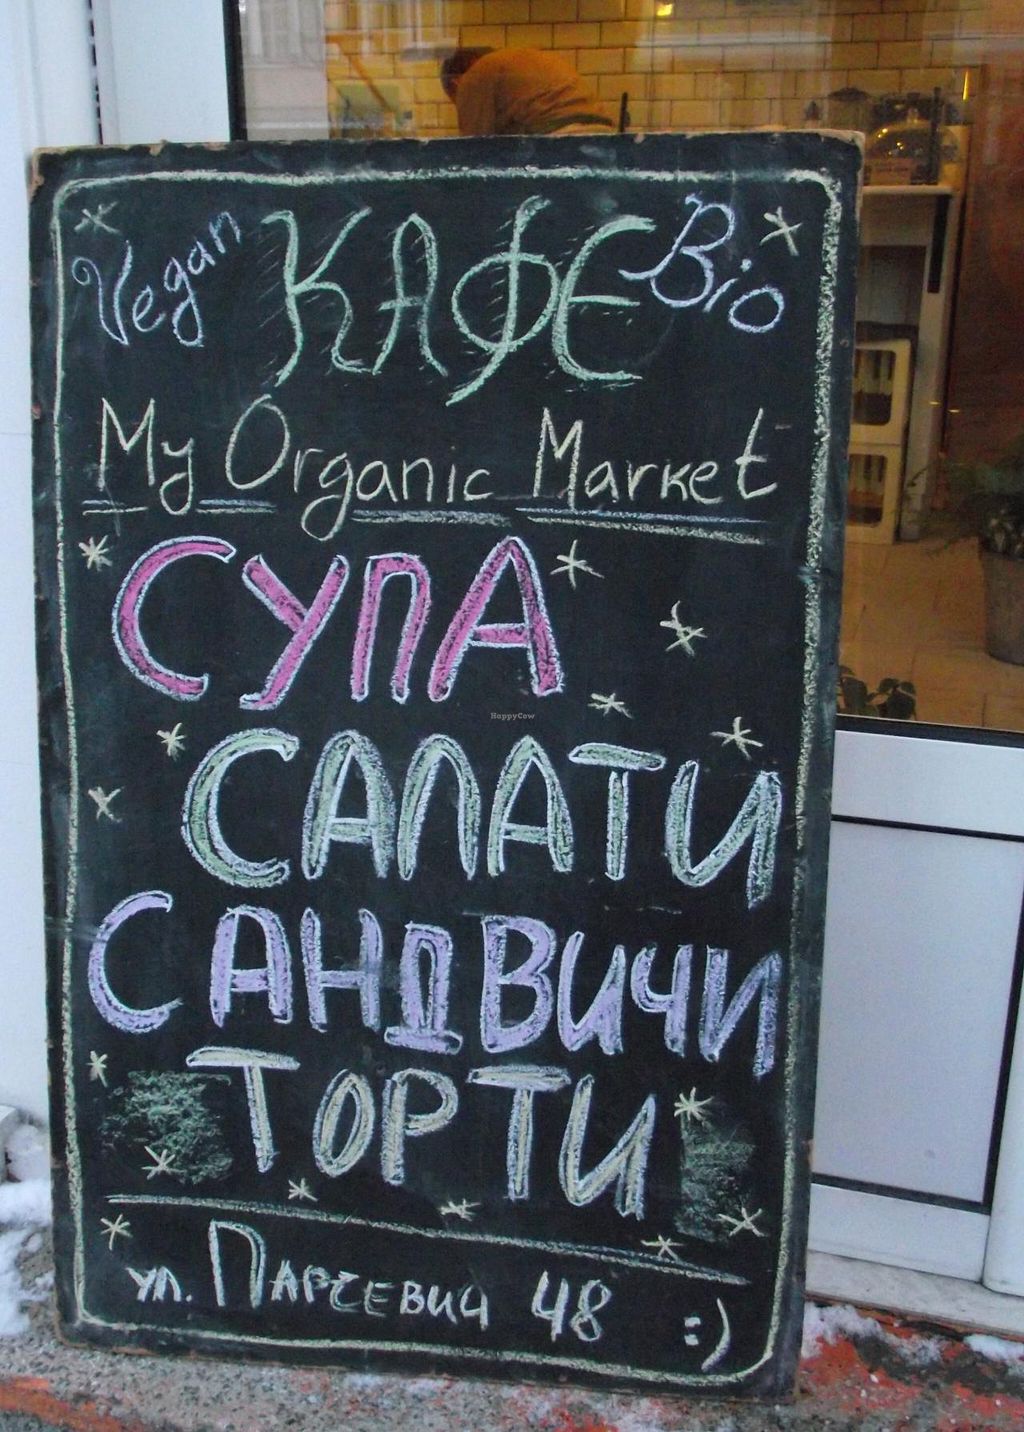 Vegan КАФЕ Bio
My Organic Market
СУПА
HappyCow
САЛАТИ
САНДВИЧИ
ТОРТИ
ул. ПАРЧЕВИЧ 48 :)